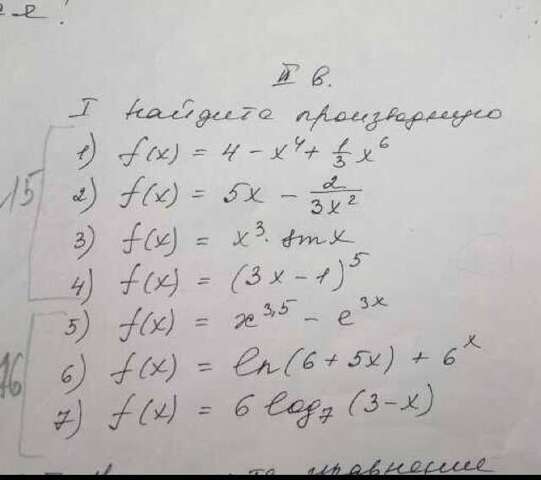 II в.
I Найдите производную
1) f(x) = 4 - x^4 + 1/3 x^6
2) f(x) = 5x - 2/(3x^2)
3) f(x) = x^3 · sin x
4) f(x) = (3x - 1)^5
15
5) f(x) = x^3,5 - e^3x
6) f(x) = ln(6 + 5x) + 6^x
7) f(x) = 6 log_7 (3 - x)
16
уравнение